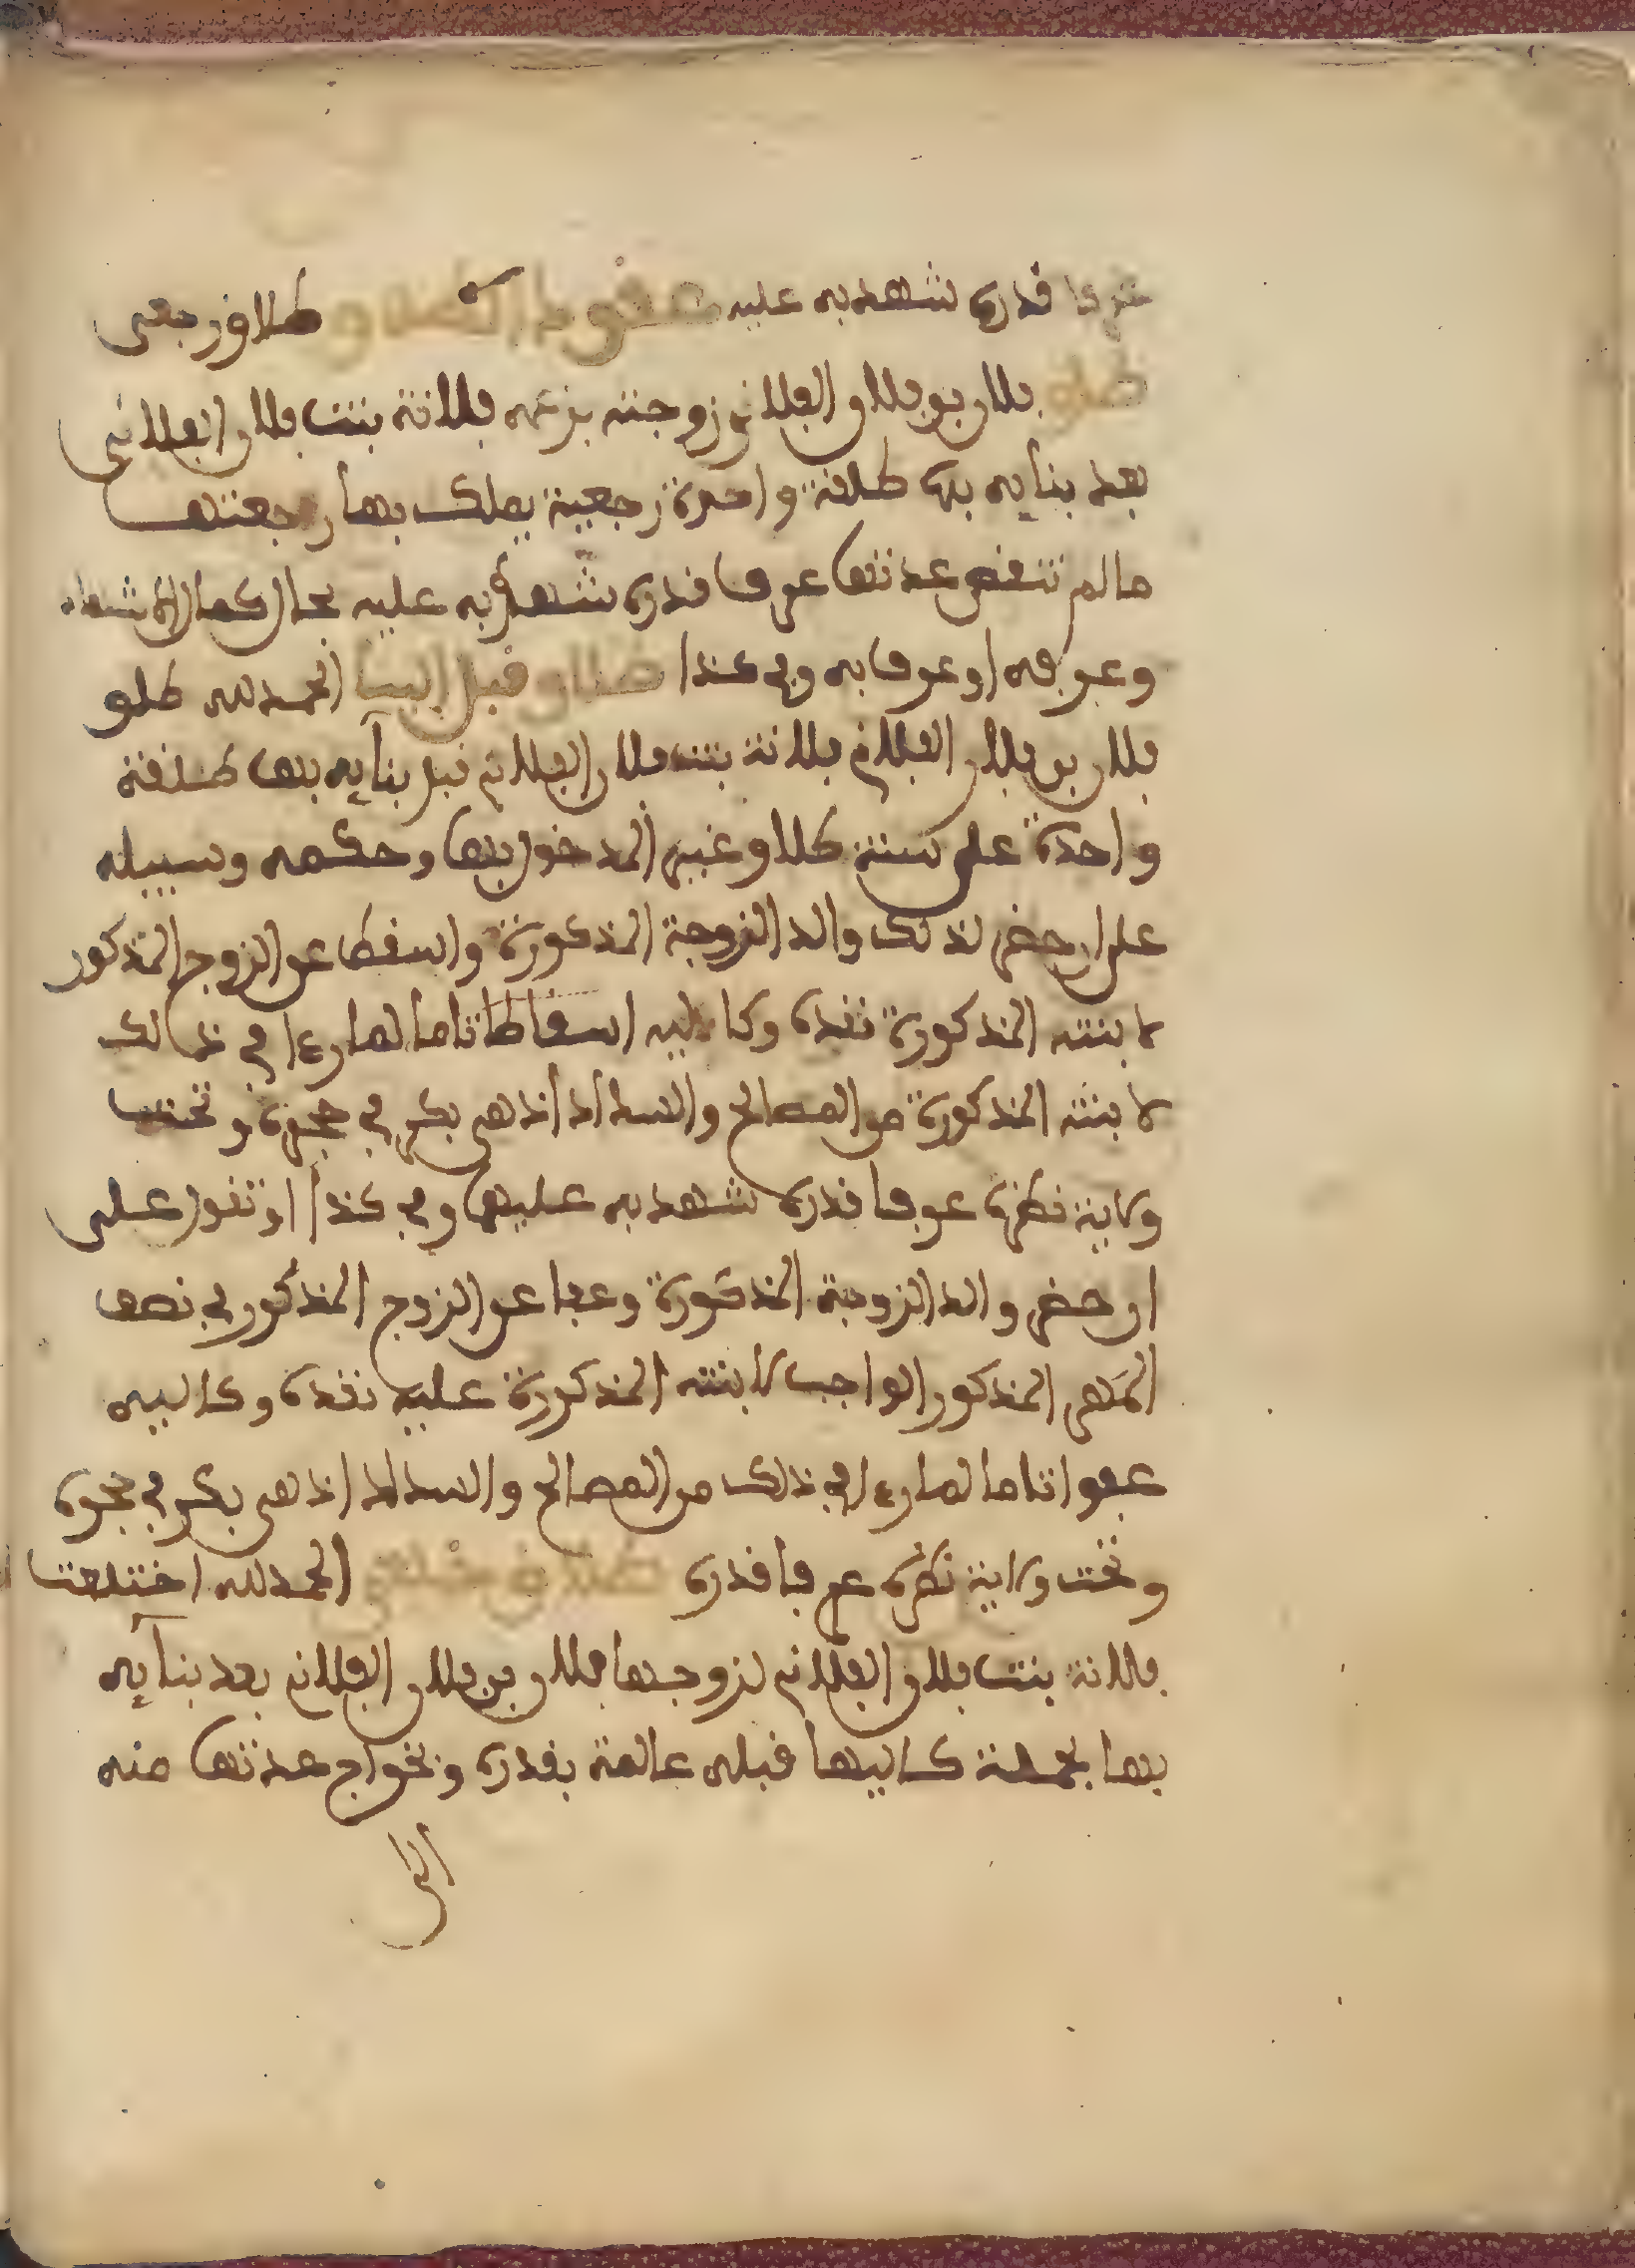 عرفا قدره شهد به عليه عقود الطلاق طلاق رجعي
طلق فلان بن فلان الفلاني زوجته بزعمه فلانة بنت فلان الفلاني
بعد بنايه بها طلقة واحدة رجعية يملك بها رجعتها
ما لم تنقض عدتها عرفا قدره شهد به عليه بحال كمال الاشهاد
وعرفه او عرفا به وفي كذا طلاق قبل البنا الحمد لله طلق
فلان بن فلان الفلاني فلانة بنت فلان الفلاني قبل بنآيه بها طلقة
واحدة على سنة طلاق غير المدخول بها وحكمه وسبيله
على ان حضر لذلك والد الزوجة المذكورة واسقط عن الزوج المذكور
لابنته المذكورة نقده وكاليه اسقاطا تاما لما رءا في ذالك
لابنته المذكورة من المصالح والسداد اذ هي بكر في حجره وتحت
ولاية نظره عرفا قدره شهد به عليهما وفي كذا او تقول على
ان حضر والد الزوجة المذكورة وعفا عن الزوج المذكور في نصف
المهر المذكور الواجب لابنته المذكورة عليه نقده وكاليه
عفوا تاما لما رءا في ذلك من المصالح والسداد اذ هي بكر في حجره
وتحت ولاية نظره عرفا قدره طلاق خلعي الحمد لله اختلعت
فلانة بنت فلان الفلاني لزوجها فلان بن فلان الفلاني بعد بنآيه
بها بجملة كاليها قبله عالمة بقدره وبخراج عدتها منه
الى